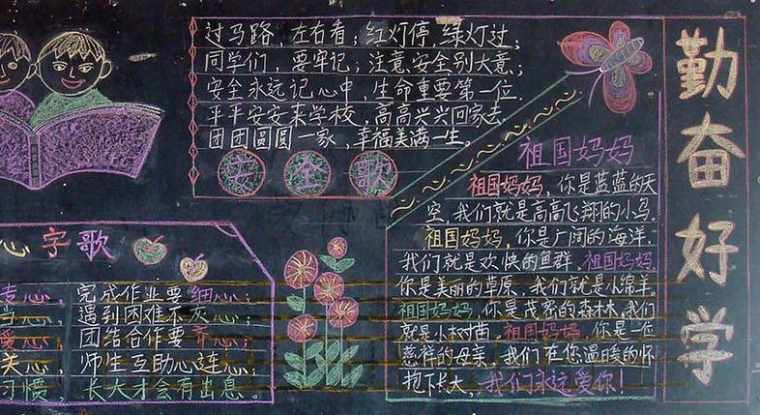 过马路，左右看；红灯停，绿灯过；
同学们，要牢记；注意安全别大意；
安全永远记心中，生命重要第一位.
平平安安来学校，高高兴兴回家去.
团团圆圆一家，幸福美满一生。
安全歌
祖国妈妈
祖国妈妈，你是蓝蓝的天
空，我们就是高高飞翔的小鸟.
祖国妈妈，你是广阔的海洋.
我们就是欢快的鱼群，祖国妈妈
你是美丽的草原，我们就是小绵羊，
祖国妈妈，你是茂密的森林，我们
就是小树苗，祖国妈妈，你是一位
慈祥的母亲，我们在您温暖的怀
抱下长大，我们永远爱你！
心字歌
心，完成作业要细心；
心，遇到困难不灰心；
爱心，团结合作要齐心；
关心，师生互助心连心；
习惯，长大才会有出息。
勤奋好学